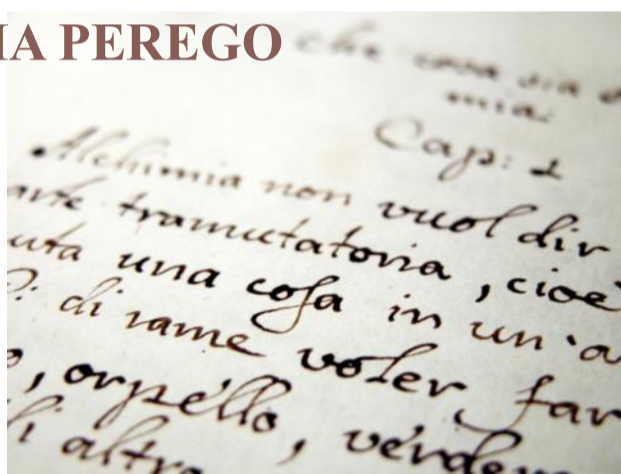 IA PEREGO
che cosa sia
mia.
Cap: 1
Alchimia non vuol dir
arte tramutatoria, cioè
uta una cosa in un'a
di rame voler far
, orpello, verder
i altro